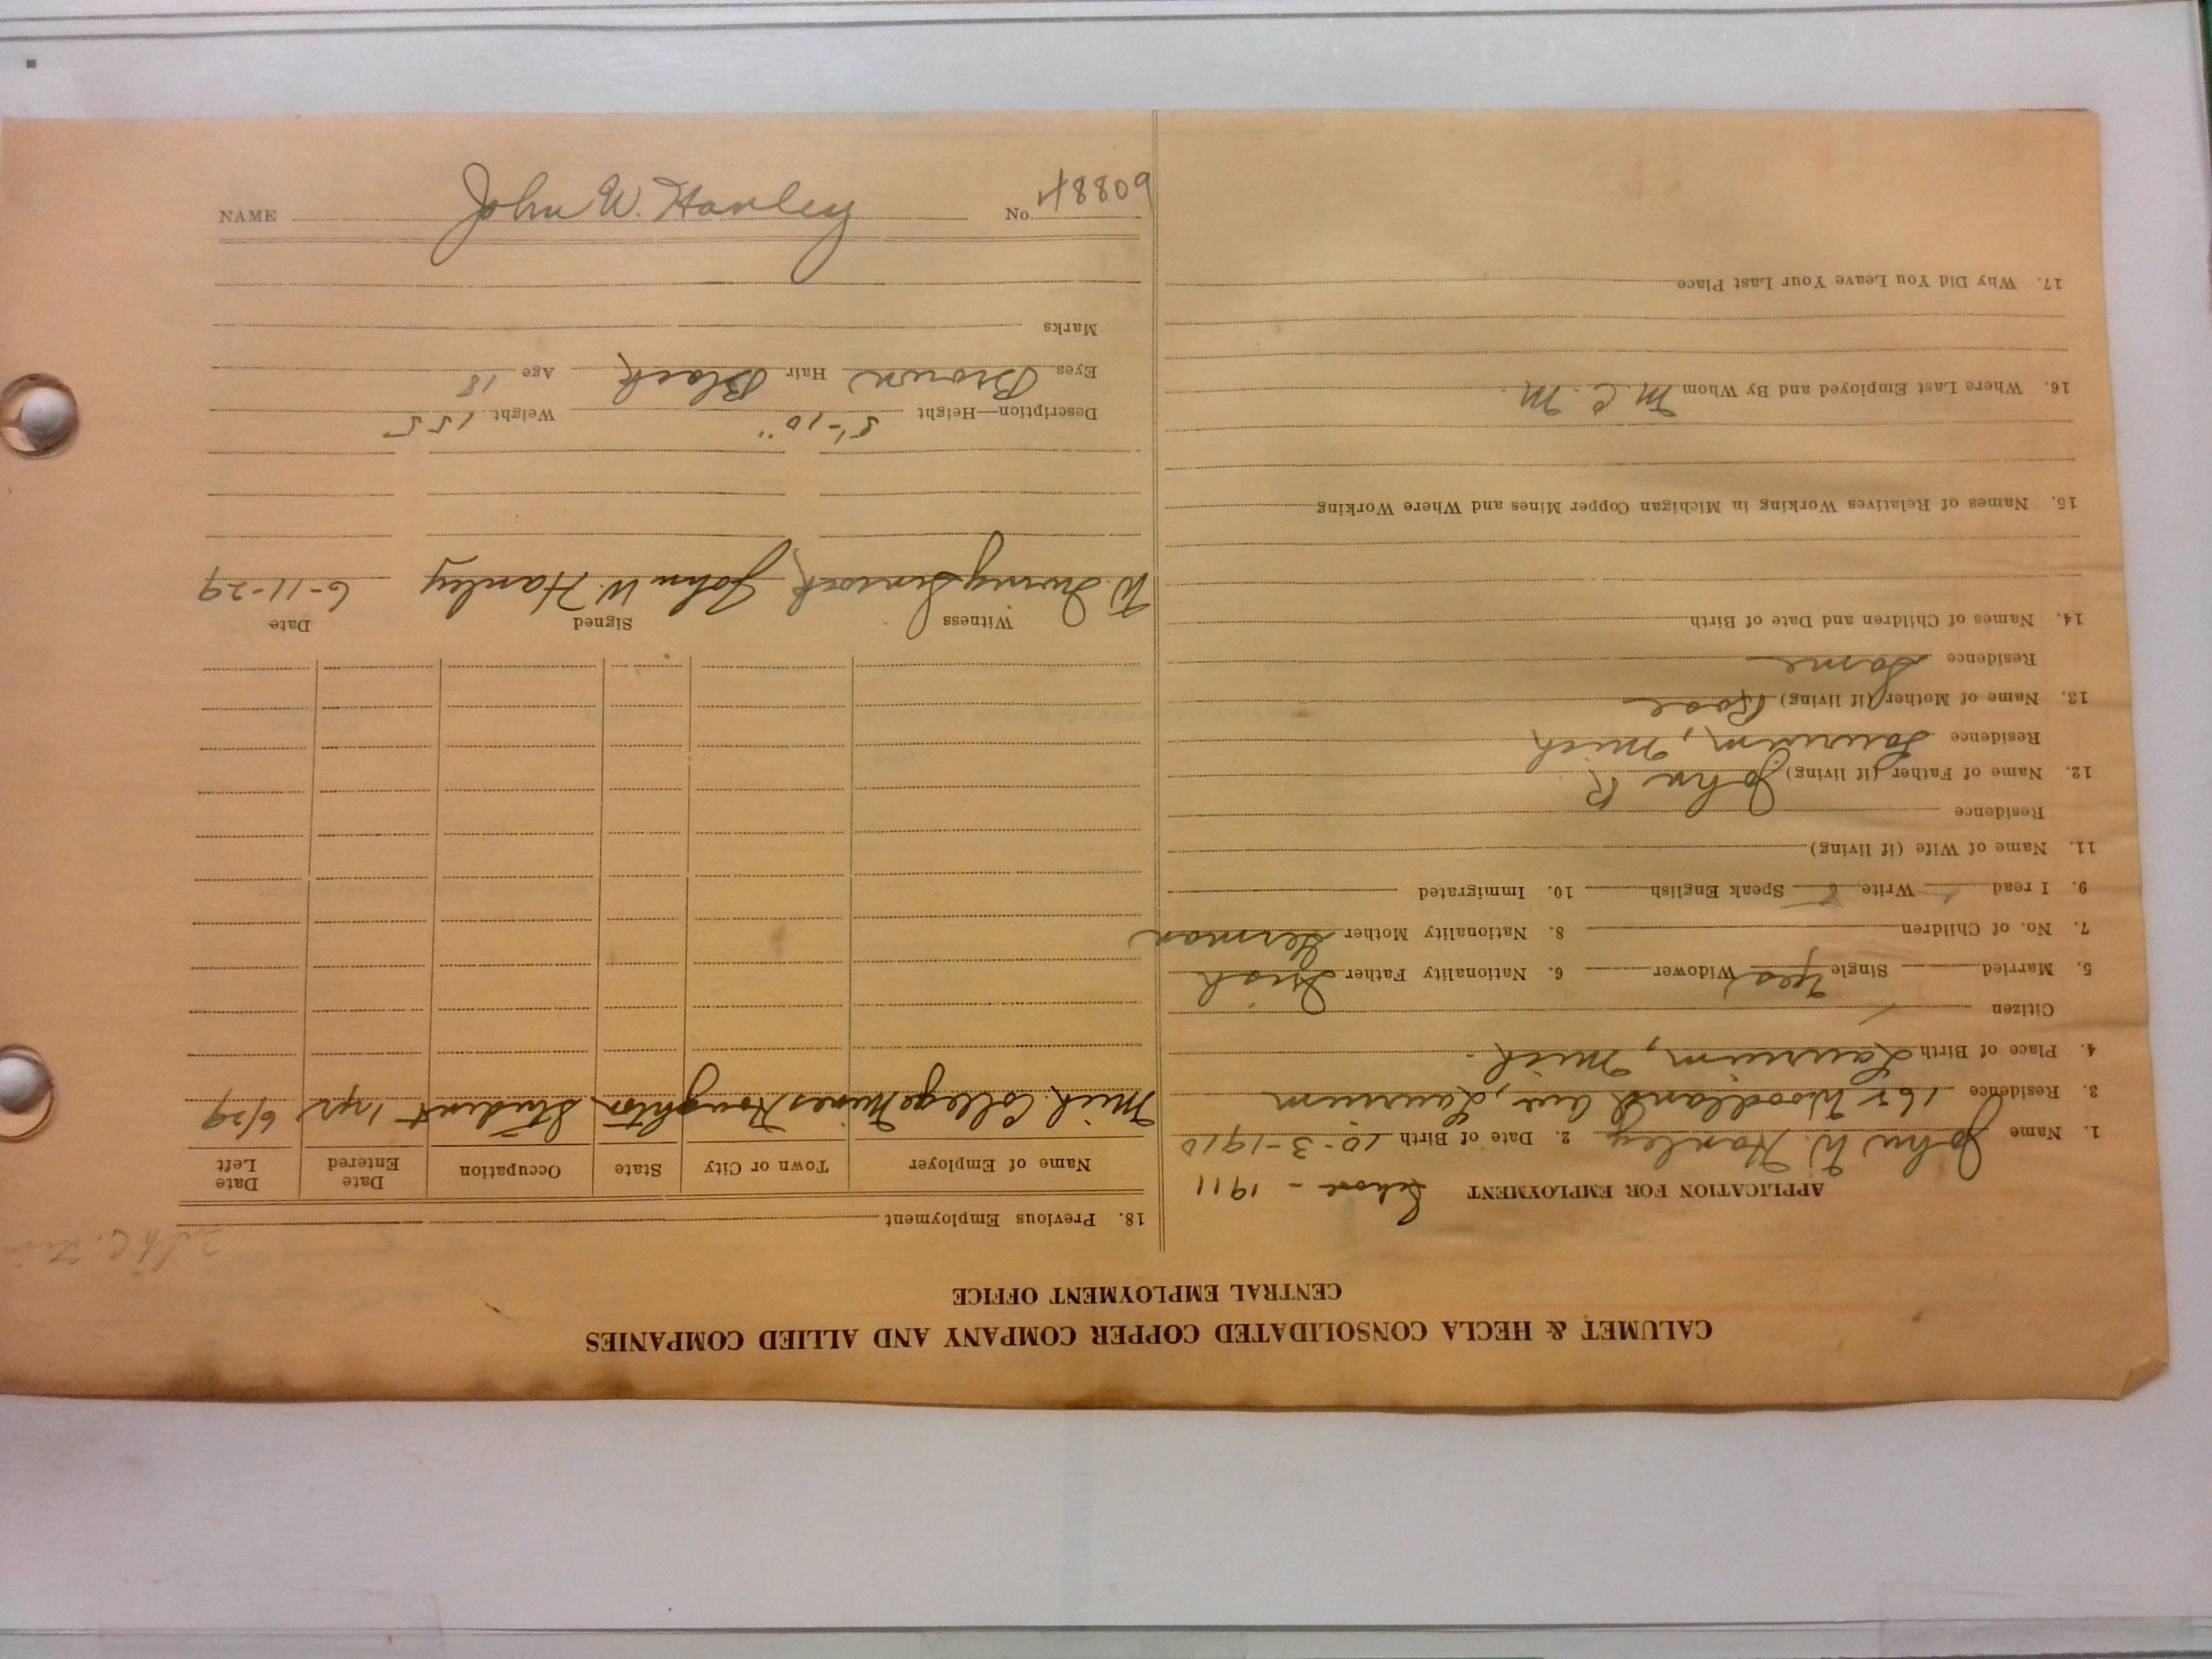 CALUMET & HECLA CONSOLIDATED COPPER COMPANY AND ALLIED COMPANIES
CENTRAL EMPLOYMENT OFFICE
APPLICATION FOR EMPLOYMENT - 1911
1. Name John W. Hanley 2. Date of Birth 10-3-1910
3. Residence Woodland Ave, Laurium
4. Place of Birth Laurium, Mich.
Citizen
5. Married Single Yes Widower 6. Nationality Father Irish
7. No. of Children 8. Nationality Mother German
9. I read Write Speak English 10. Immigrated
11. Name of Wife (if living)
Residence
12. Name of Father (if living) John R
Residence Laurium, Mich
13. Name of Mother (if living) Rose
Residence Same
14. Names of Children and Date of Birth
15. Names of Relatives Working in Michigan Copper Mines and Where Working
16. Where Last Employed and By Whom M.C.M.
17. Why Did You Leave Your Last Place
18. Previous Employment
Name of Employer Town or City State Occupation Date Entered Date Left
Mich. College Mines Houghton Student 1 yr 6/29
Witness Signed Date
W. John W. Hanley 6-11-29
Description—Height 5'-10" Weight 155
Eyes Brown Hair Black Age 18
Marks
NAME John W. Hanley No. 48809